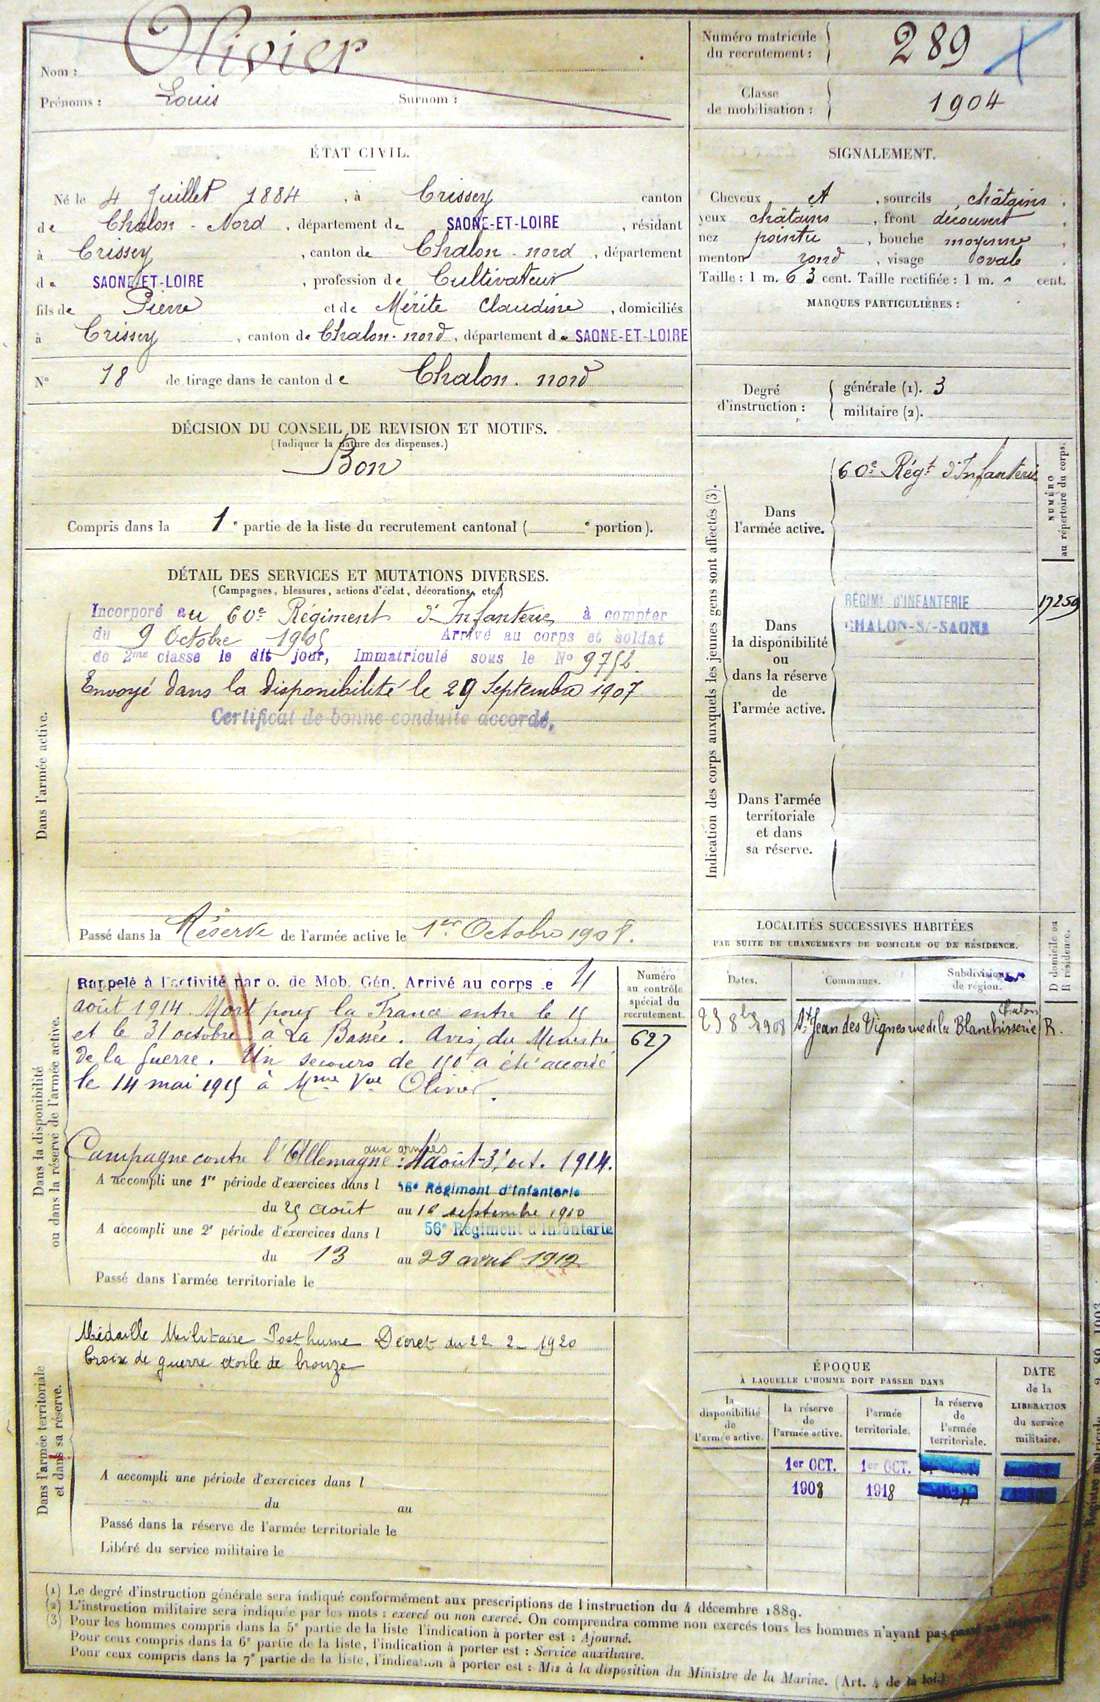 Nom : Olivier
Prénoms : Louis Surnom :
Numéro matricule du recrutement : 289
Classe de mobilisation : 1904
ÉTAT CIVIL.
Né le 4 Juillet 1884, à Crissey canton
de Chalon-Nord, département de SAONE-ET-LOIRE, résidant
à Crissey, canton de Chalon-nord, département
de SAONE-ET-LOIRE, profession de Cultivateur
fils de Pierre et de Mérite Claudine, domiciliés
à Crissey, canton de Chalon-nord, département de SAONE-ET-LOIRE
N° 18 de tirage dans le canton de Chalon-nord
SIGNALEMENT.
Cheveux, sourcils châtains,
yeux châtains, front découvert,
nez pointu, bouche moyenne,
menton rond, visage ovale.
Taille : 1 m. 63 cent. Taille rectifiée : 1 m. cent.
MARQUES PARTICULIÈRES :
Degré d'instruction : générale (1). 3
militaire (2).
DÉCISION DU CONSEIL DE REVISION ET MOTIFS.
(Indiquer la nature des dispenses.)
Bon
Compris dans la 1e partie de la liste du recrutement cantonal ( e portion).
DÉTAIL DES SERVICES ET MUTATIONS DIVERSES.
(Campagnes, blessures, actions d'éclat, décorations, etc.)
Dans l'armée active.
Incorporé au 60e Régiment d'Infanterie à compter
du 9 Octobre 1905 Arrivé au corps et soldat
de 2me classe le dit jour, Immatriculé sous le N° 9752.
Envoyé dans la disponibilité le 29 Septembre 1907
Certificat de bonne conduite accordé.
Passé dans la Réserve de l'armée active le 1er Octobre 1908.
Indication des corps auxquels les jeunes gens sont affectés (3).
NUMÉRO au répertoire du corps.
Dans l'armée active.
60e Régt d'Infanterie
Dans la disponibilité ou dans la réserve de l'armée active.
RÉGIMt D'INFANTERIE
CHALON-S/-SAONE
17259
Dans l'armée territoriale et dans sa réserve.
Dans la disponibilité ou dans la réserve de l'armée active.
Rappelé à l'activité par o. de Mob. Gén. Arrivé au corps le 4
août 1914 Mort pour la France entre le 15
et le 31 octobre à La Bassée. Avis du Ministre
de la Guerre. Un secours de 150f a été accordé
le 14 mai 1915 à Mme Vve Olivier.
Campagne contre l'Allemagne aux armées : 4 août-31 oct. 1914.
A accompli une 1re période d'exercices dans l 56e Régiment d'Infanterie
du 25 août au 16 septembre 1910
A accompli une 2e période d'exercices dans l 56e Régiment d'Infanterie
du 13 au 29 avril 1912
Passé dans l'armée territoriale le
Numéro au contrôle spécial du recrutement.
627
LOCALITÉS SUCCESSIVES HABITÉES
PAR SUITE DE CHANGEMENTS DE DOMICILE OU DE RÉSIDENCE.
Dates. Communes. Subdivisions de région. D domicile ou R résidence.
23 8bre 1908 St Jean des Vignes rue de la Blanchisserie Chalon R.
Dans l'armée territoriale et dans sa réserve.
Médaille Militaire Posthume Décret du 22-2-1920
Croix de guerre étoile de bronze
A accompli une période d'exercices dans l
du au
Passé dans la réserve de l'armée territoriale le
Libéré du service militaire le
ÉPOQUE
À LAQUELLE L'HOMME DOIT PASSER DANS
la disponibilité de l'armée active.
la réserve de l'armée active.
l'armée territoriale.
la réserve de l'armée territoriale.
DATE de la LIBÉRATION du service militaire.
1er OCT. 1er OCT.
1908 1918
(1) Le degré d'instruction générale sera indiqué conformément aux prescriptions de l'instruction du 4 décembre 1889.
(2) L'instruction militaire sera indiquée par les mots : exercé ou non exercé. On comprendra comme non exercés tous les hommes n'ayant pas
(3) Pour les hommes compris dans la 5e partie de la liste l'indication à porter est : Ajourné.
Pour ceux compris dans la 6e partie de la liste, l'indication à porter est : Service auxiliaire.
Pour ceux compris dans la 7e partie de la liste, l'indication à porter est : Mis à la disposition du Ministre de la Marine. (Art. 4 de la loi.)